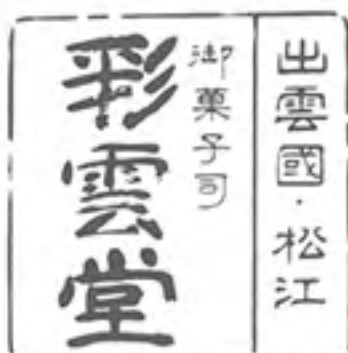 出雲國・松江
御菓子司
彩雲堂